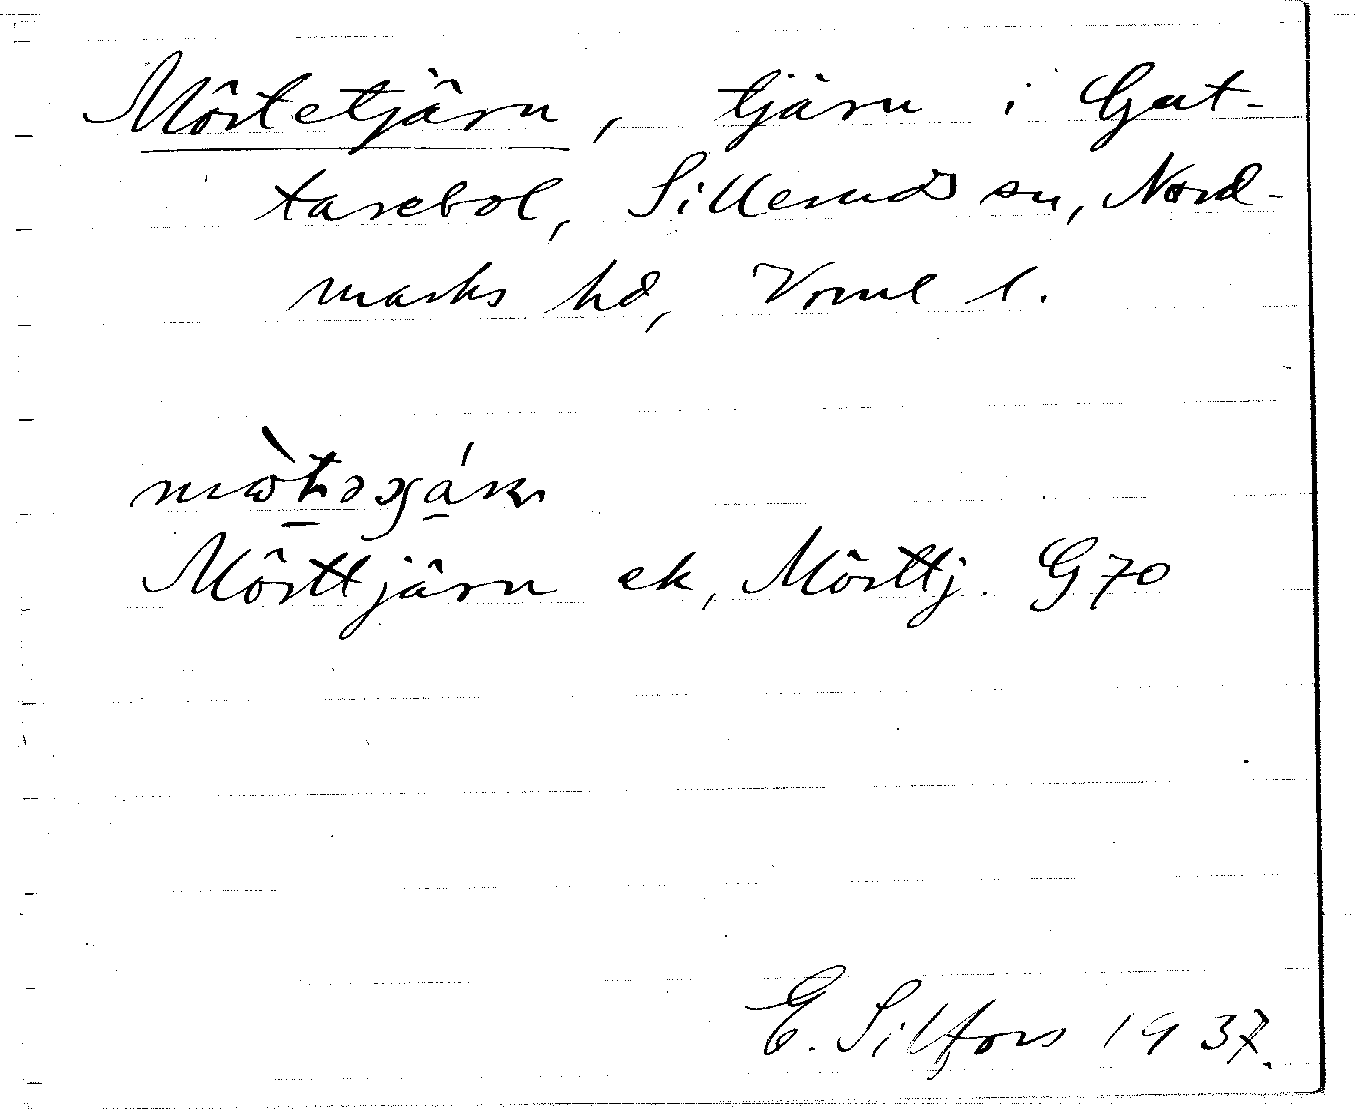 Mörtetjärn, tjärn i Gut-
tarebol, Silleruds sn, Nord-
marks hd, Vrml l.
Mörttjärn ek, Mörttj. G70
E. Silfors 1937.